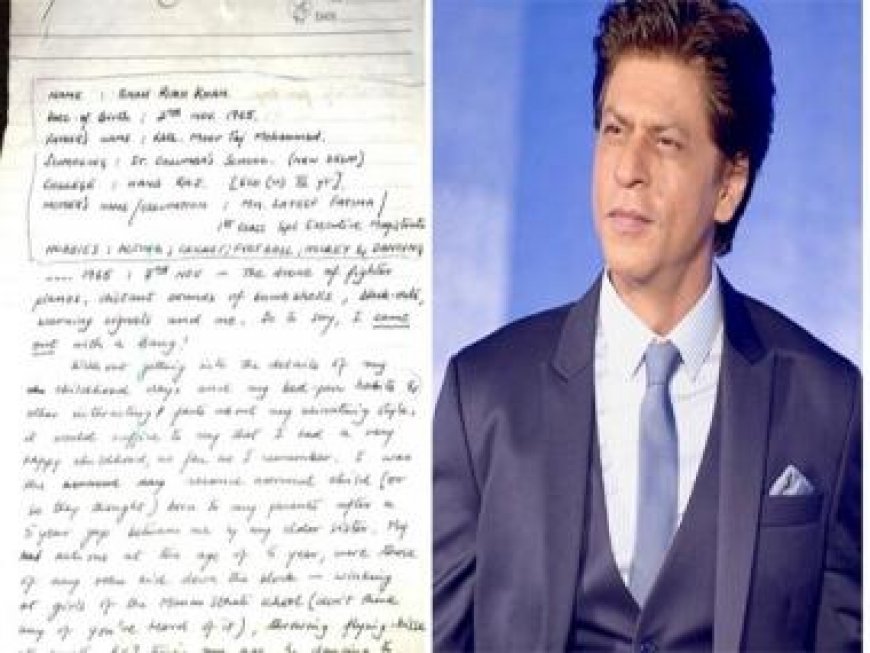 DATE
NAME : SHAH RUKH KHAN
Date of Birth : 2ND NOV. 1965
FATHER'S NAME : Late Meer Taj Mohammed.
SCHOOLING : ST. COLUMBA'S SCHOOL. (NEW DELHI)
COLLEGE : HANS RAJ. [ECO (H) III yr].
MOTHER'S NAME / OCCUPATION : MRS. LATEEF FATIMA /
1ST CLASS Spl EXECUTIVE Magistrate
HOBBIES : ACTING, CRICKET, FOOTBALL, HOCKEY & DANCING
.... 1965 : NOV — The drone of fighter
planes, distant sounds of bombshells, black-outs,
warning signals and me. So to say, I came
out with a bang!
Without getting into the details of my
childhood days and my habits &
other interesting parts about my style,
it would suffice to say that I had a very
happy childhood, as far as I remember. I was
the normal child (or
so they thought) born to my parents after a
5 year gap between me & my older sister. My
actions at the age of 5 year, were those
of any other kid down the block — winking
at girls of the school (don't think
any of you've heard of it), throwing flying-kisses